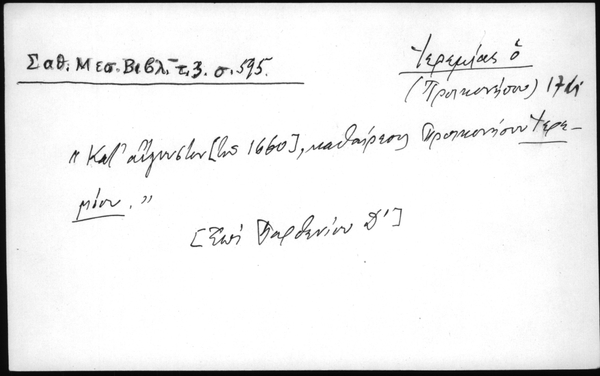 Σαθ. Μεσ. Βιβλ. τ. 3. σ. 595.
Ἱερεμίας ὁ
(Προικονήσου) 17
"Κατ' αὔγουστον [τοῦ 1660], καθαίρεσις Προικονήσου Ἱερε-
μίου."
[Ἐπὶ Παρθενίου Δ']